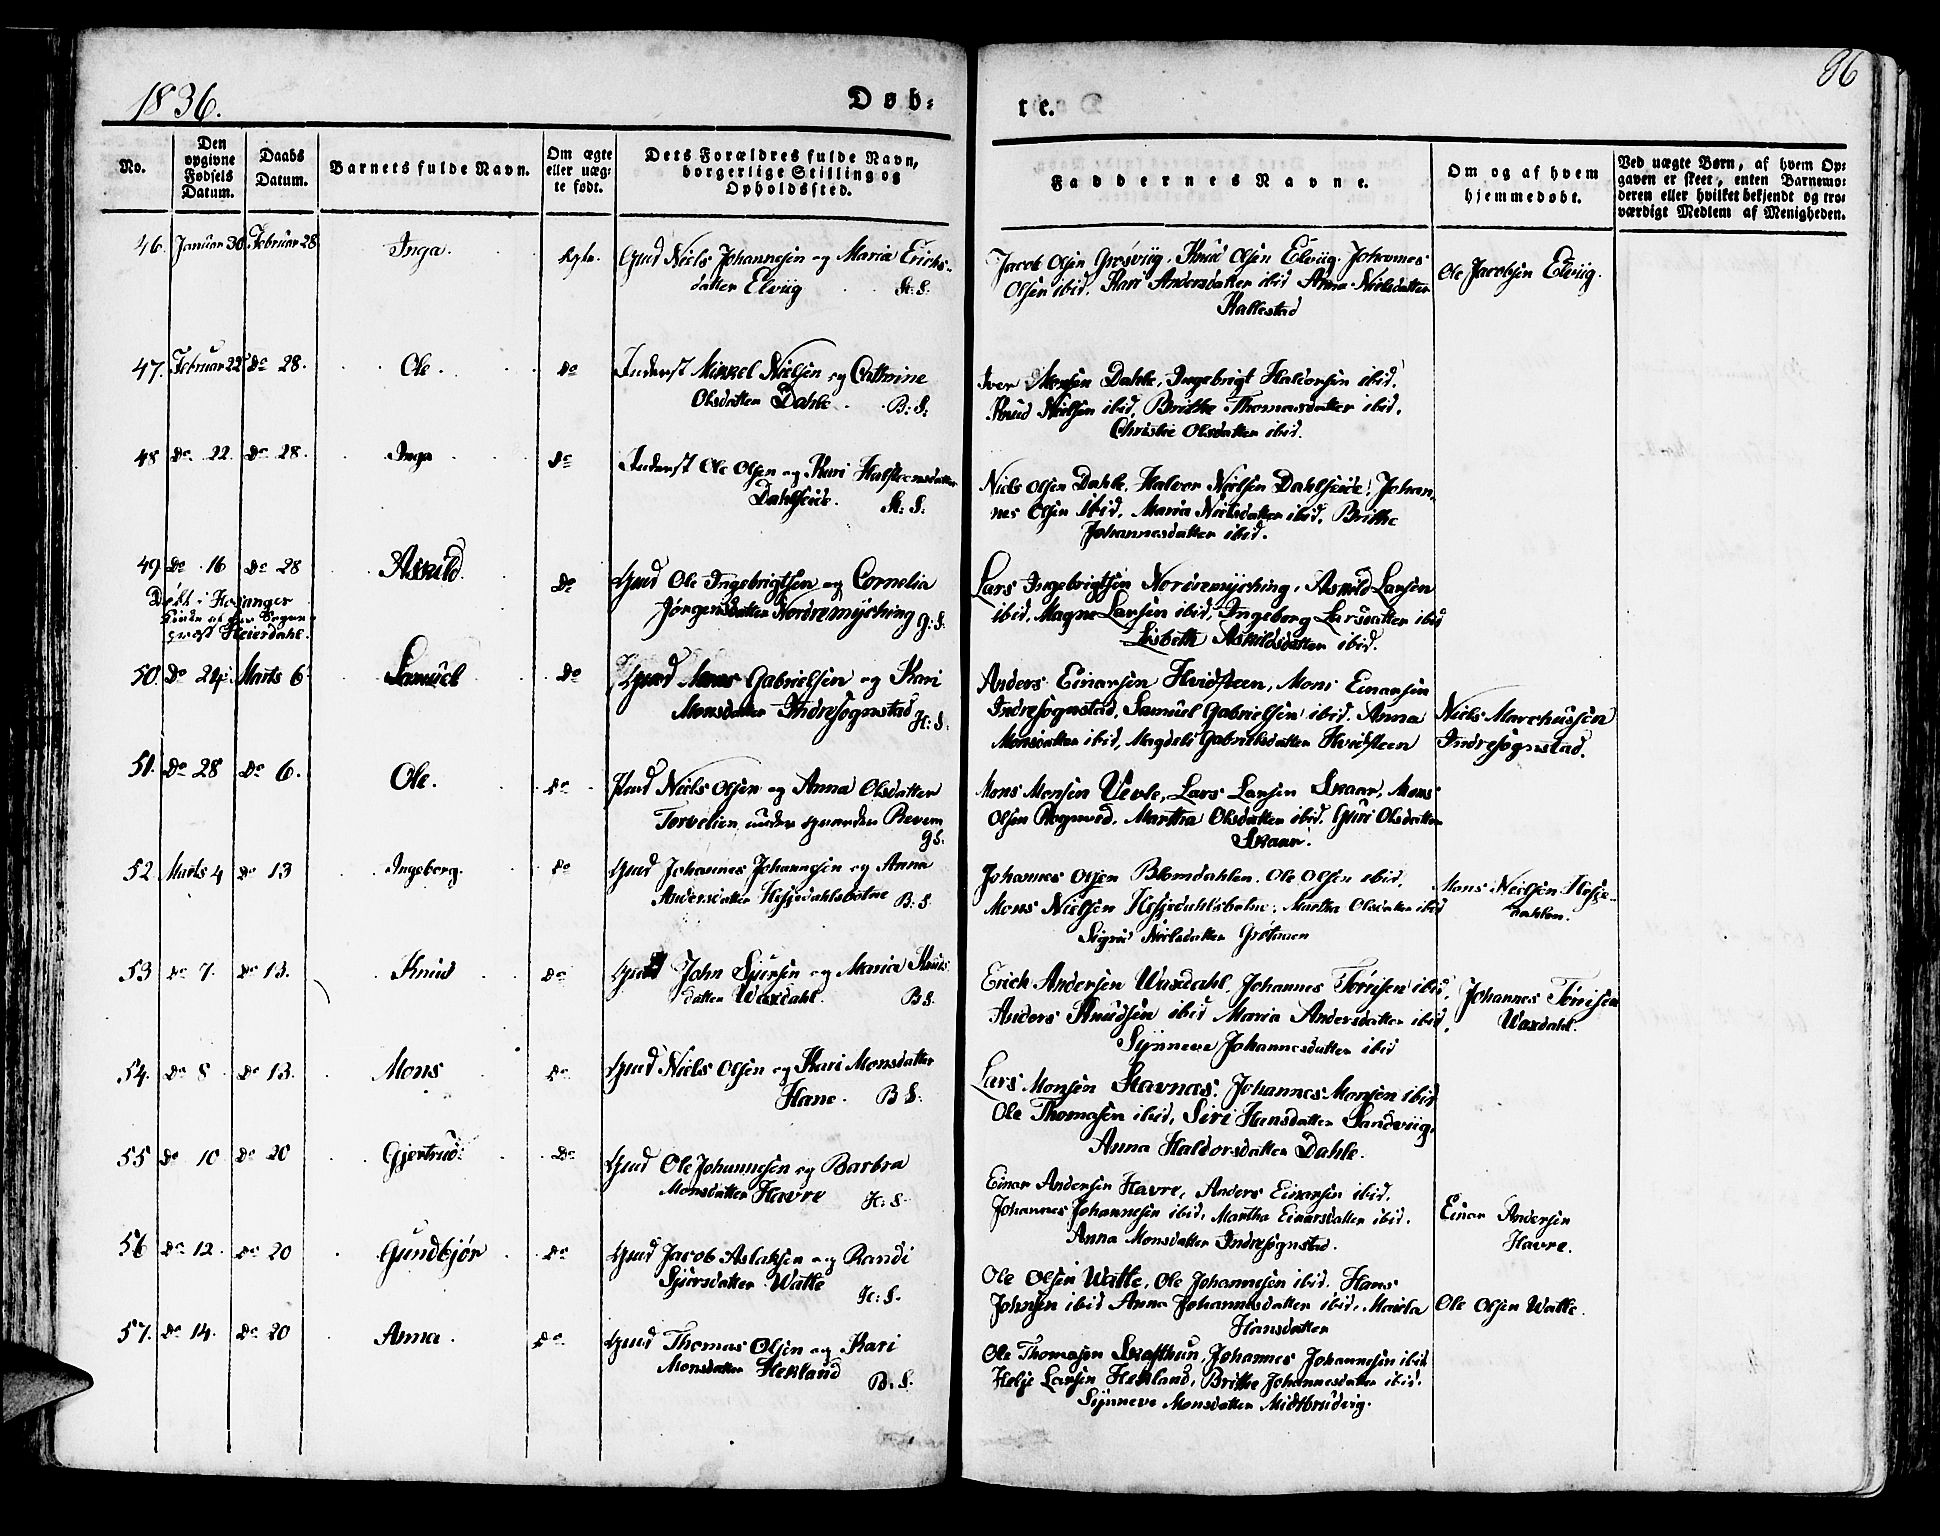 1836.
Døb-
te.
86
No.
Den opgivne Fødsels Datum.
Daabs Datum.
Barnets fulde Navn.
Om ægte eller uægte født.
Dets Forældres fulde Navn, borgerlige Stilling og Opholdsted.
Faddernes Navne.
Om og af hvem hjemmedøbt.
Ved uægte Børn, af hvem Opgaven er skeet, enten Barnemoderen eller hvilket bekjendt og troværdigt Medlem af Menigheden.
46. Januar 30 Februar 28 Inga. Ægte. Gmd Niels Johannesen og Maria Erichs-
datter Elviig
Jacob Olsen Grøsviig, Knud Olsen Elviig. Johannes
Olsen ibid. Kari Andersdatter ibid Anna Nielsdatter
Kallestad
Ole Jacobsen Elviig.
47. Februar 22 Do 28. Ole. Do Inderst Mikkel Nielsen og Cathrine
Olsdatter Dahle. B: S:
Iver Monsen Dahle, Ingebrigt Haldorsen ibid.
Knud Nielsen ibid, Brithe Thomasdatter ibid.
Christie Olsdatter ibid.
48 Do 22 Do 28. Inga Do Inderst Ole Olsen og Kari Halsteensdatter
Dahlseide.
Niels Olsen Dahle, Halvor Nielsen Dahlseide, Johan-
nes Olsen ibid, Maria Nielsdatter ibid, Brithe
Johannesdatter ibid.
49 Do 16 Do 28 Askild. Do Gmd Ole Ingebrigtsen og Cornelia
Jørgensdatter Nordremyching G: S:
Døbt i Hosanger
Kirke af Hr Sogne-
præst Heierdahl.
Lars Ingebrigtsen Nordremyching, Askild Larsen
ibid, Magne Larsen ibid, Ingeborg Larsdatter ibid
Lisbeth Askildsdatter ibid.
50. Do 24. Marts 6 Samuel Do Gmd Mons Gabrielsen og Kari
Monsdatter Indresognstad H: S:
Anders Einarsen Hvidsteen, Mons Einarsen
Indresognstad, Samuel Gabrielsen ibid. Anna
Monsdatter ibid, Magdeli Gabrielsdatter Hvidsteen
Niels Marchussen
Indresognstad.
51. Do 28 Do 6. Ole. Do Pmd Niels Olsen og Anna Olsdatter
Torvelien under gaarden Reven
G S.
Mons Monsen Verle, Lars Larsen Skaar, Mons
Olsen Rognved. Martha Olsdatter ibid. Guri Olsdatter
Skaar.
52 Marts 4 Do 13 Ingeborg. Do Gmd Johannes Johannesen og Anna
Andersdatter Hesjedahlsbotne B. S.
Johannes Olsen Blomdahlen. Ole Olsen ibid.
Mons Nielsen Hesjedahlsbotne, Martha Olsdatter ibid
Sigrid Nielsdatter
Mons Nielsen Hesje-
dahlen.
53 Do 7. Do 13. Knud Do Gmd John Sjursen og Maria Knuds
datter Waxdahl. B S.
Erich Andersen Waxdahl, Johannes Torrisen ibid,
Anders Knudsen ibid Maria Andersdatter ibid.
Synneve Johannesdatter ibid
Johannes Torrisen
Waxdahl.
54. Do 8 Do 13. Mons Do Gmd Niels Olsen og Kari Monsdatter
Hane. B S.
Lars Monsen Stavnæs. Johannes Monsen ibid
Ole Thomasen ibid, Siri Hansdatter Sandviig,
Anna Haldorsdatter Dahle.
55 Do 10 Do 20 Gjertrud: Do Gmd Ole Johannesen og Barbra
Monsdatter Havre H: S.
Einar Andersen Havre, Anders Einarsen ibid.
Johannes Johannesen ibid. Martha Einarsdatter ibid.
Anna Monsdatter Indresognstad.
Einar Andersen
Havre.
56 Do 12. Do 20 Gundbjør Do Gmd Jacob Aslaksen og Randi
Sjursdatter Watle H: S.
Ole Olsen Watle, Ole Johannesen ibid. Hans
Johnsen ibid Anna Johannesdatter ibid. Marla
Hansdatter
Ole Olsen Watle.
57. Do 14. Do 20 Anna. Do Gmd Thomas Olsen og Kari
Monsdatter Hekland B. S.
Ole Thomasen Skafthun, Johannes Johannesen ibid
Helje Larsen Hekland, Brithe Johannesdatter ibid.
Synneve Monsdatter Midtbrudvig.